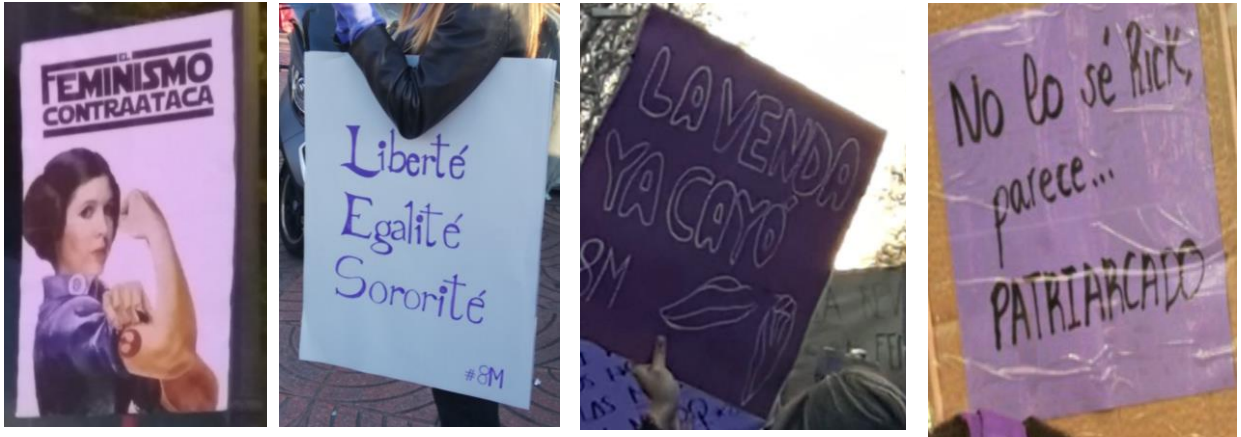 EL
FEMINISMO
CONTRAATACA
Liberté
Egalité
Sororité
#8M
LA VENDA
YA CAYÓ
8M
No lo sé RICK,
parece...
PATRIARCADO